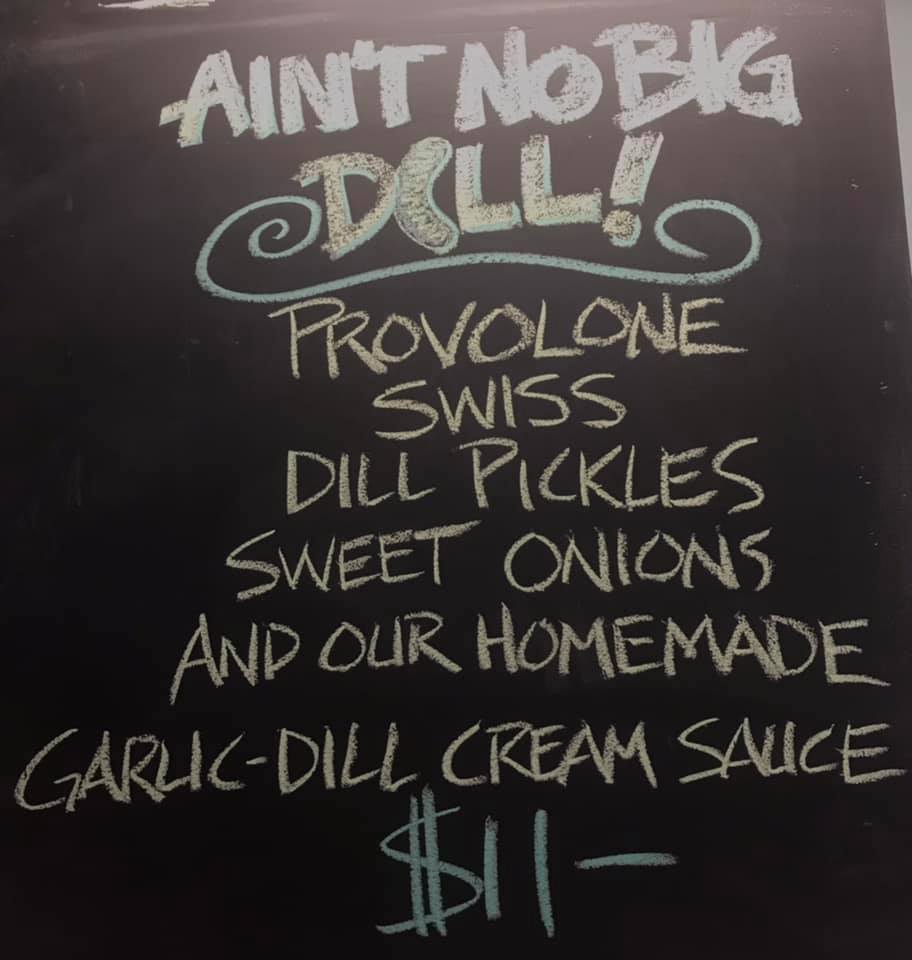 AIN'T NO BIG
DILL!
PROVOLONE
SWISS
DILL PICKLES
SWEET ONIONS
AND OUR HOMEMADE
GARLIC-DILL CREAM SAUCE
$11-